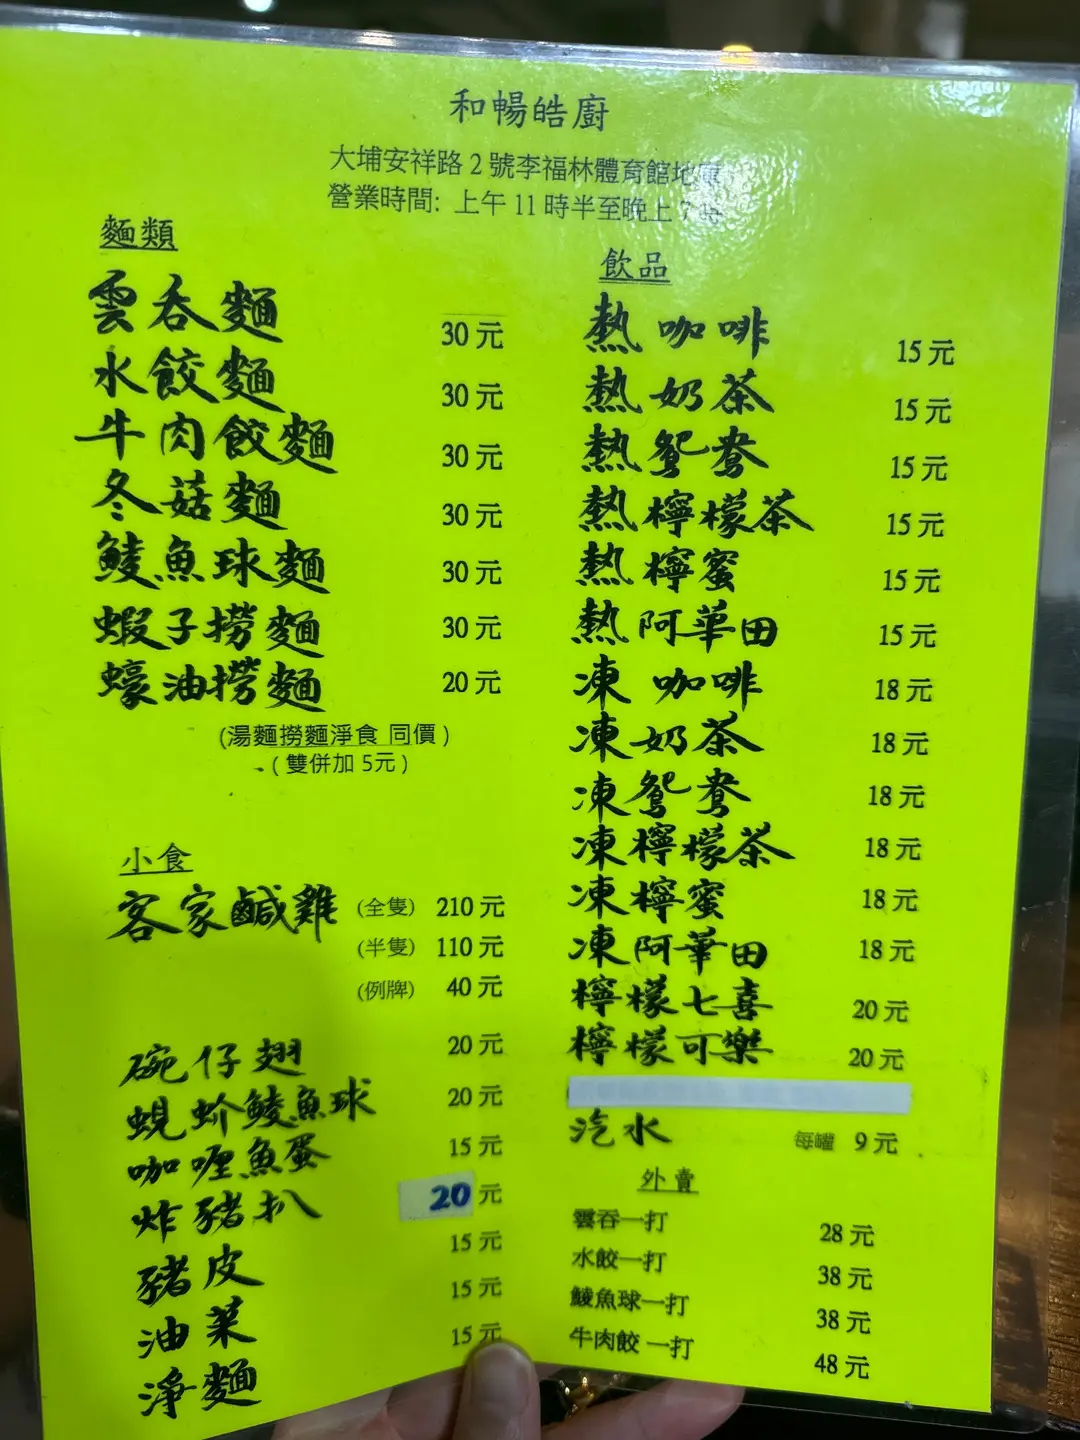 和暢皓廚
大埔安祥路 2 號李福林體育館地
營業時間: 上午 11 時半至晚上 7 時
麵類
雲吞麵 30 元
水餃麵 30 元
牛肉餃麵 30 元
冬菇麵 30 元
鯪魚球麵 30 元
蝦子撈麵 30 元
蠔油撈麵 20 元
(湯麵撈麵淨食 同價)
(雙併加 5元)
小食
客家鹹雞 (全隻) 210 元
(半隻) 110 元
(例牌) 40 元
碗仔翅 20 元
蜆蚧鯪魚球 20 元
咖喱魚蛋 15 元
炸豬扒 20 元
豬皮 15 元
油菜 15 元
淨麵 15 元
飲品
熱咖啡 15 元
熱奶茶 15 元
熱鴛鴦 15 元
熱檸檬茶 15 元
熱檸蜜 15 元
熱阿華田 15 元
凍咖啡 18 元
凍奶茶 18 元
凍鴛鴦 18 元
凍檸檬茶 18 元
凍檸蜜 18 元
凍阿華田 18 元
檸檬七喜 20 元
檸檬可樂 20 元
汽水 每罐 9 元
外賣
雲吞一打 28 元
水餃一打 38 元
鯪魚球一打 38 元
牛肉餃一打 48 元